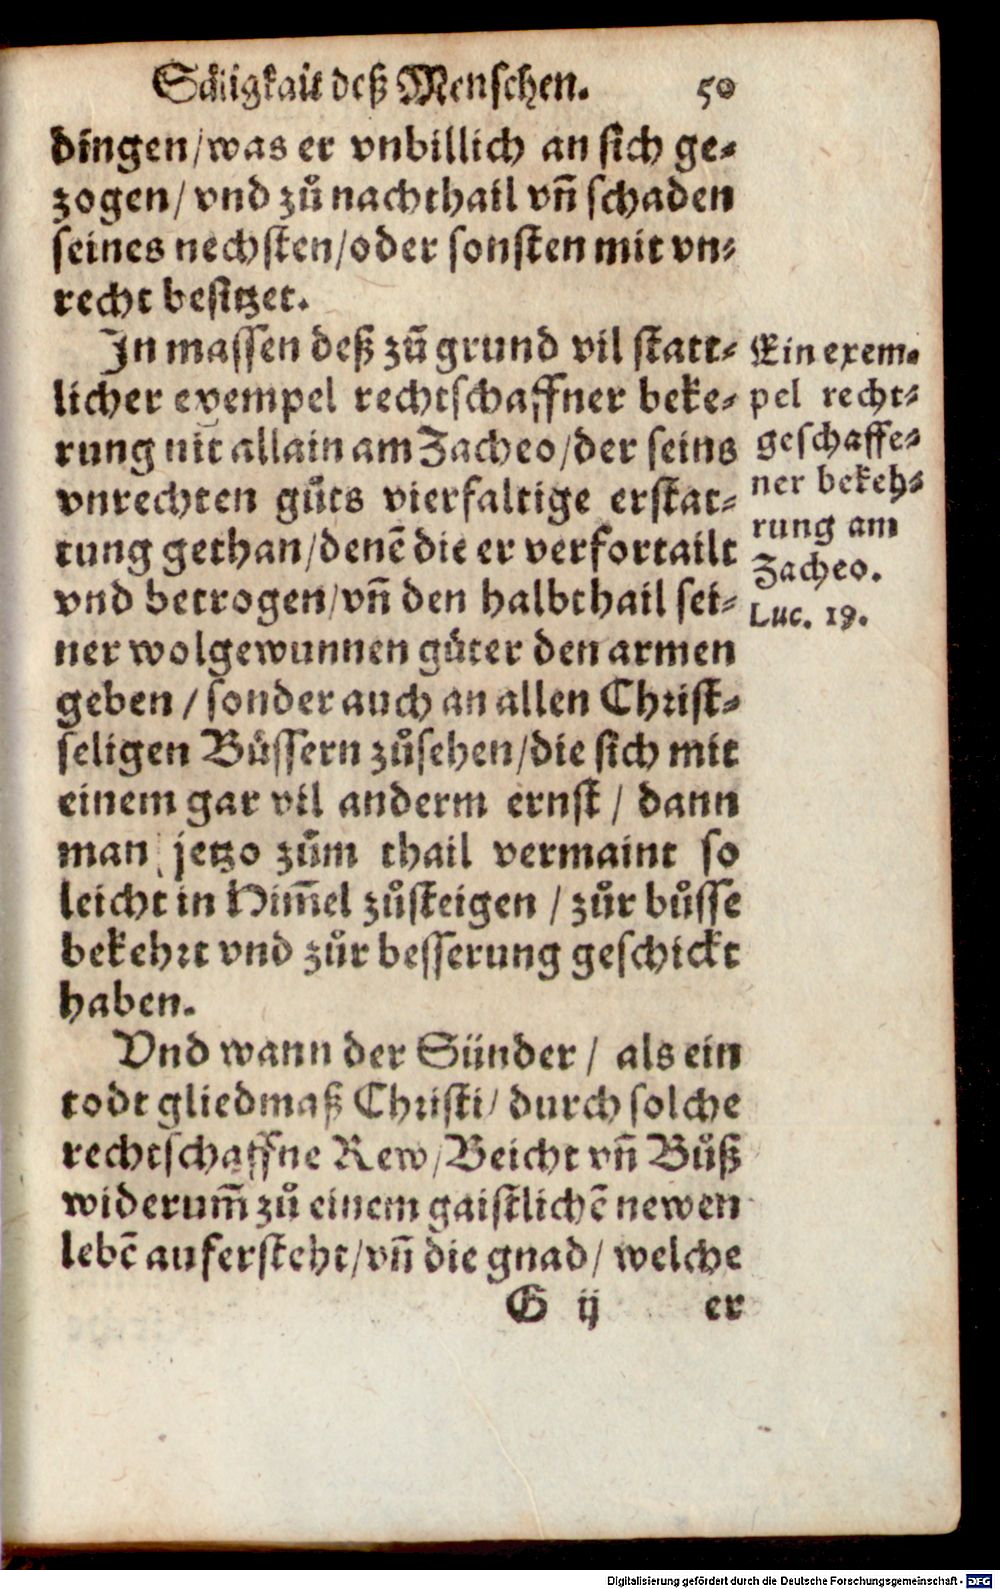 Säligkait deß Menschen. 50
dingen/was er vnbillich an sich ge⸗
zogen/ vnd zů nachthail vn̄ schaden
seines nechsten/oder sonsten mit vn⸗
recht besitzet.
In massen deß zů grund vil statt⸗
licher exempel rechtschaffner beke⸗
rung nit allain am Zacheo/der seins
vnrechten gůts vierfaltige erstat⸗
tung gethan/denē die er verfortailt
vnd betrogen/vn̄ den halbthail sei⸗
ner wolgewunnen gůter den armen
geben / sonder auch an allen Christ⸗
seligen Bůssern zůsehen/die sich mit
einem gar vil anderm ernst / dann
man jetzo zům thail vermaint so
leicht in Him̄el zůsteigen / zůr bůsse
bekehrt vnd zůr besserung geschickt
haben.
Ein exem⸗
pel recht⸗
geschaffe⸗
ner bekeh⸗
rung am
Zacheo.
Luc. 19.
Vnd wann der Sünder / als ein
todt gliedmaß Christi/ durch solche
rechtschaffne Rew/Beicht vn̄ Bůß
widerum̄ zů einem gaistlichē newen
lebē aufersteht/vn̄ die gnad/ welche
G ij er
Digitalisierung gefördert durch die Deutsche Forschungsgemeinschaft - DFG